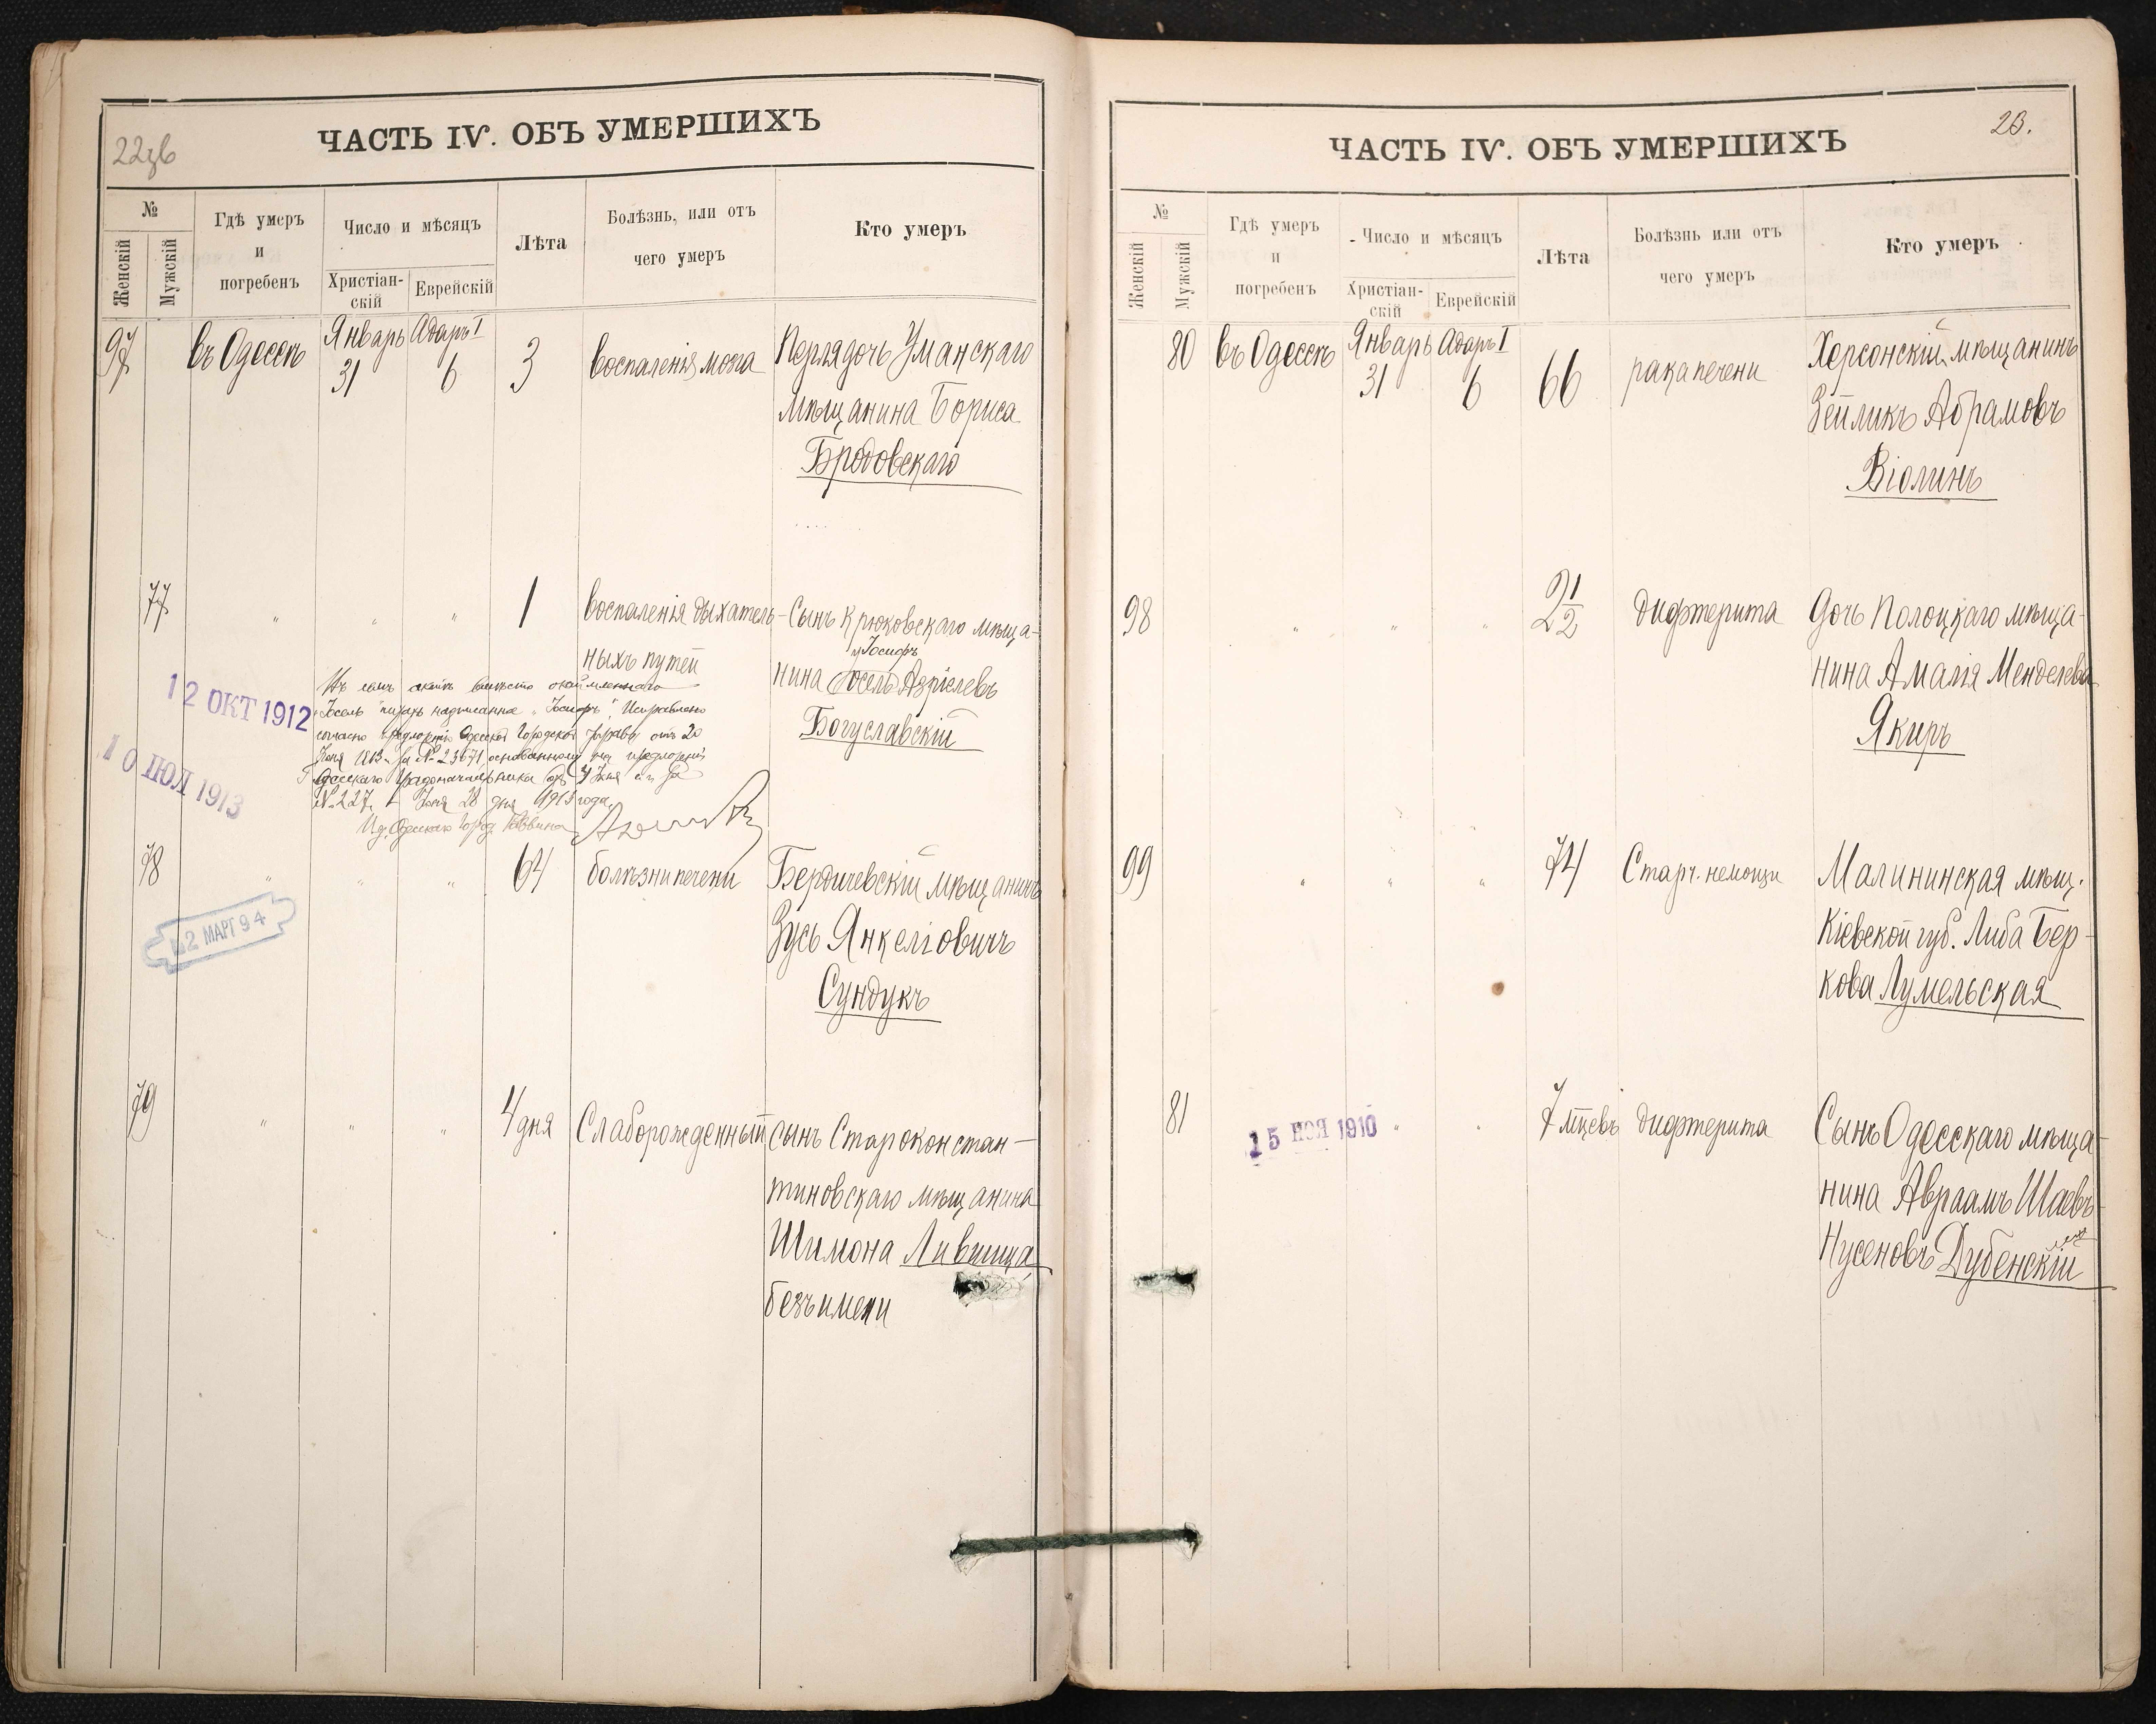 22зв
ЧАСТЬ IV. ОБЪ УМЕРШИХЪ
№
Женскій
Мужскій
Гдѣ умеръ
и
погребенъ
Число и мѣсяцъ
Христіан-
скій
Еврейскій
Лѣта
Болѣзнь, или отъ
чего умеръ
Кто умеръ
97 въ Одессѣ Январь Адаръ I 3 воспаленія мозга Перля дочь Уманскаго
31 6
мѣщанина Бориса
Бродовскаго
77 " " " 1 воспаленія дыхатель- Сынъ Крюковскаго мѣща-
ныхъ путей
Іосифъ
нина Іосель Азріелевъ
Богуславскій
12 ОКТ 1912
Въ семъ актѣ вмѣсто
Іосель надписанное "Іосифъ". Исправлено
согласно Одесской Городской Управы отъ 20
Іюня 1913 г. за № 23671, основанному на предложеніи
Одесскаго Градоначальника
№ 227. Іюня 28 дня 1913 года.
10 ІЮЛ 1913
Одесскаго Город. Раввина
78 " " " 64 болѣзни печени Бердичевскій мѣщанинъ
Зусь Янкеліовичъ
Сундукъ
2 МАРТ 94
79 " " " 4 дня Слаборожденный сынъ Староконстан-
тиновскаго мѣщанина
Шимона Лившица
безъ имени
23.
ЧАСТЬ IV. ОБЪ УМЕРШИХЪ
№
Женскій
Мужскій
Гдѣ умеръ
и
погребенъ
Число и мѣсяцъ
Христіан-
скій
Еврейскій
Лѣта
Болѣзнь или отъ
чего умеръ
Кто умеръ
80 въ Одессѣ Январь Адаръ I 66 рака печени Херсонскій мѣщанинъ
31 6
Зейликъ Абрамовъ
Віолинъ
98 " " " 2 1/2 дифтерита Дочь Полоцкаго мѣща-
нина Амалія Менделева
Якиръ
99 " " " 74 Старч. немощи Малининская мѣщ.
Кіевской губ. Либа Бер-
кова Лумельская
81 15 НОЯ 1910 " " 7 мцевъ дифтерита Сынъ Одесскаго мѣща-
нина Авраамъ Шаевъ-
Нусеновъ Дубенскій